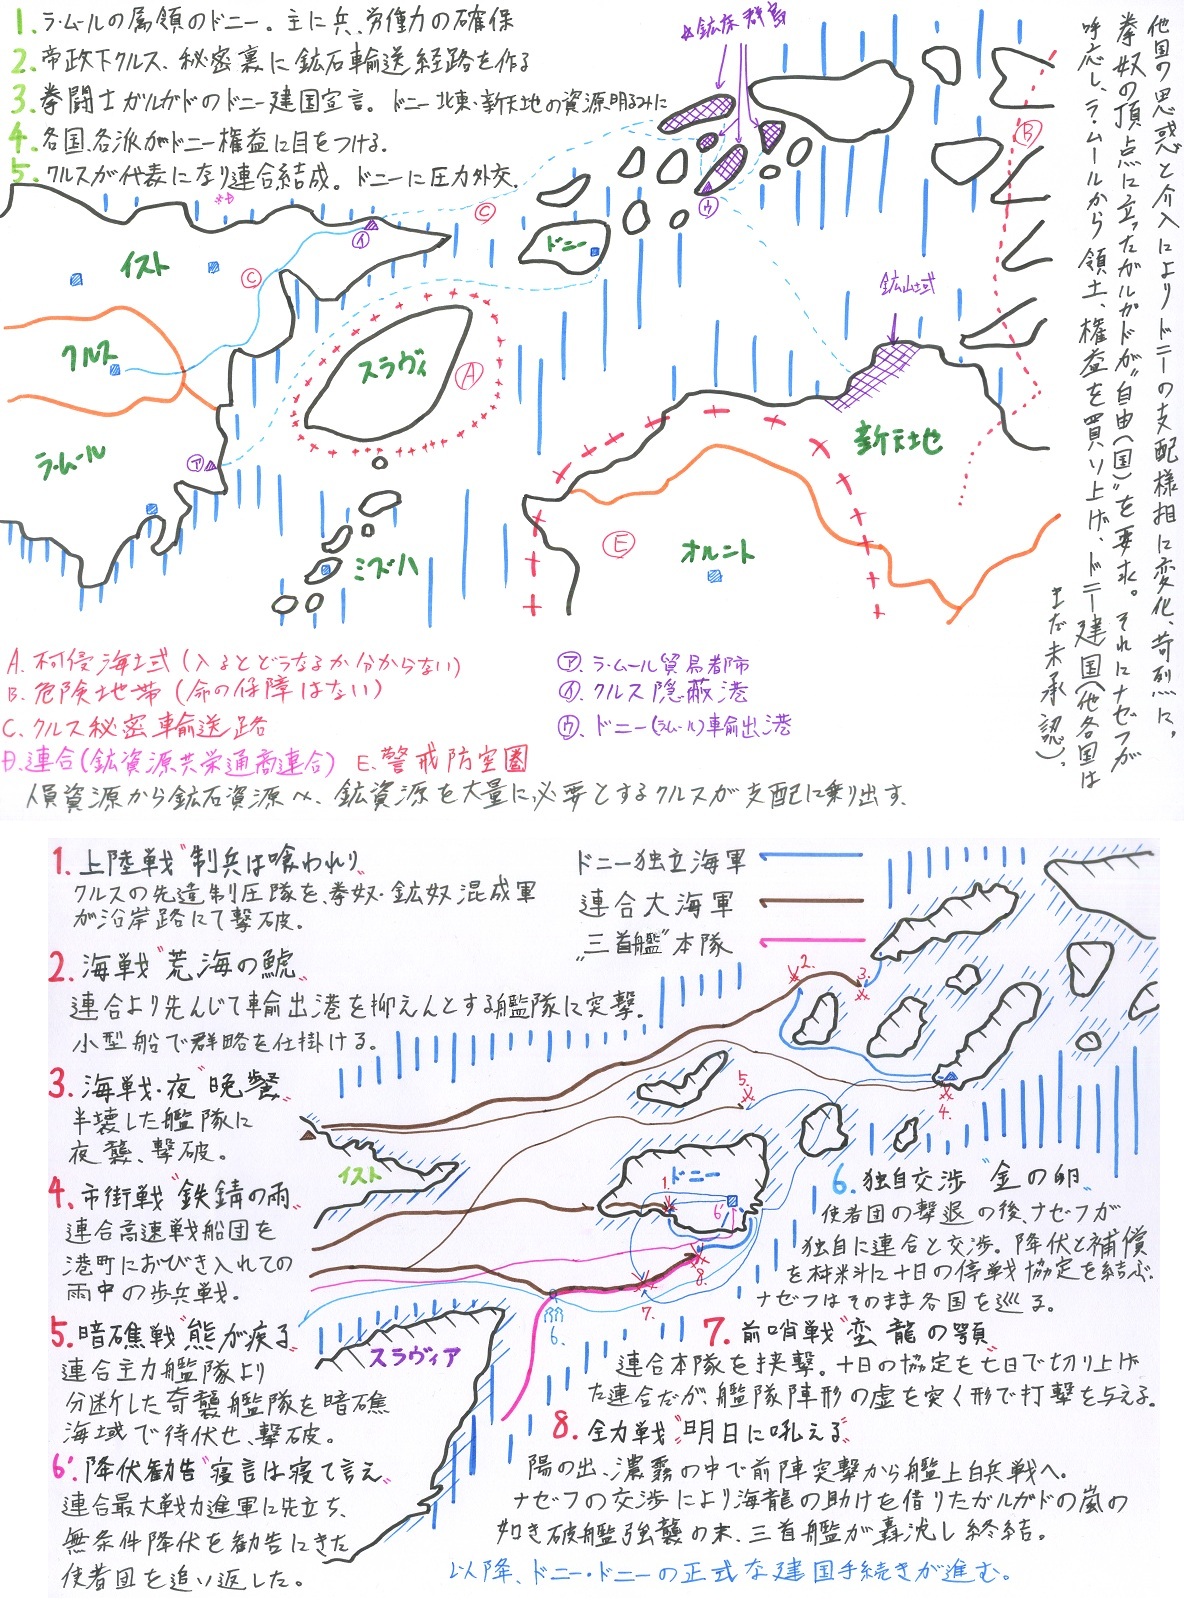 1. ラ・ムールの属領のドニー。主に兵、労働力の確保
2. 帝政下クルス、秘密裏に鉱石輸送経路を作る
3. 拳闘士ガルガドのドニー建国宣言。ドニー北東・新天地の資源明るみに
4. 各国、各派がドニー権益に目をつける。
5. クルスが代表になり連合結成。ドニーに圧力外交。
※D
☆鉱床群島
他国の思惑と介入によりドニーの支配様相に変化、苛烈に。
拳奴の頂点に立ったガルガドが“自由(国)”を要求。それにナゼフが
呼応し、ラ・ムールから領土、権益を買い上げ、ドニー建国(他各国は
まだ未承認)。
B
C
ウ
イ
ドニー
イスト
C
鉱山域
クルス
スラヴィ
A
新天地
ラ・ムール
ア
E
オルニト
ミズハ
A. 不可侵海域(入るとどうなるか分からない)
B. 危険地帯(命の保障はない)
C. クルス秘密輸送路
D. 連合(鉱資源共栄通商連合) E. 警戒防空圏
ア. ラ・ムール貿易都市
イ. クルス隠蔽港
ウ. ドニー(ラムール)輸出港
人員資源から鉱石資源へ、鉱資源を大量に必要とするクルスが支配に乗り出す。
1. 上陸戦“制兵は喰われり”
クルスの先遣制圧隊を、拳奴・鉱奴混成軍
が沿岸路にて撃破。
ドニー独立海軍
連合大海軍
“三首艦”本隊
2. 海戦“荒海の鯱”
連合より先んじて輸出港を抑えんとする艦隊に突撃。
小型船で群略を仕掛ける。
3. 海戦・夜“晩餐”
半壊した艦隊に
夜襲、撃破。
4. 市街戦“鉄錆の雨”
連合高速戦船団を
港町におびき入れての
雨中の歩兵戦。
5. 暗礁戦“熊が疾る”
連合主力艦隊より
分断した奇襲艦隊を暗礁
海域で待伏せ、撃破。
6'. 降伏勧告“寝言は寝て言え”
連合最大戦力進軍に先立ち、
無条件降伏を勧告にきた
使者団を追い返した。
2.
3.
5.
4.
イスト
ドニー
1.
6'
8.
7.
6.
スラヴィア
6. 独自交渉“金の卵”
使者団の撃退の後、ナゼフが
独自に連合と交渉。降伏と補償
を材料に十日の停戦協定を結ぶ。
ナゼフはそのまま各国を巡る。
7. 前哨戦“蛮龍の顎”
連合本隊を挟撃。十日の協定を七日で切り上げ
た連合だが、艦隊陣形の虚を突く形で打撃を与える。
8. 全力戦“明日に吼える”
陽の出、濃霧の中で前陣突撃から艦上白兵戦へ。
ナゼフの交渉により海龍の助けを借りたガルガドの嵐の
如き破艦強襲の末、三首艦が轟沈し終結。
以降、ドニー・ドニーの正式な建国手続きが進む。